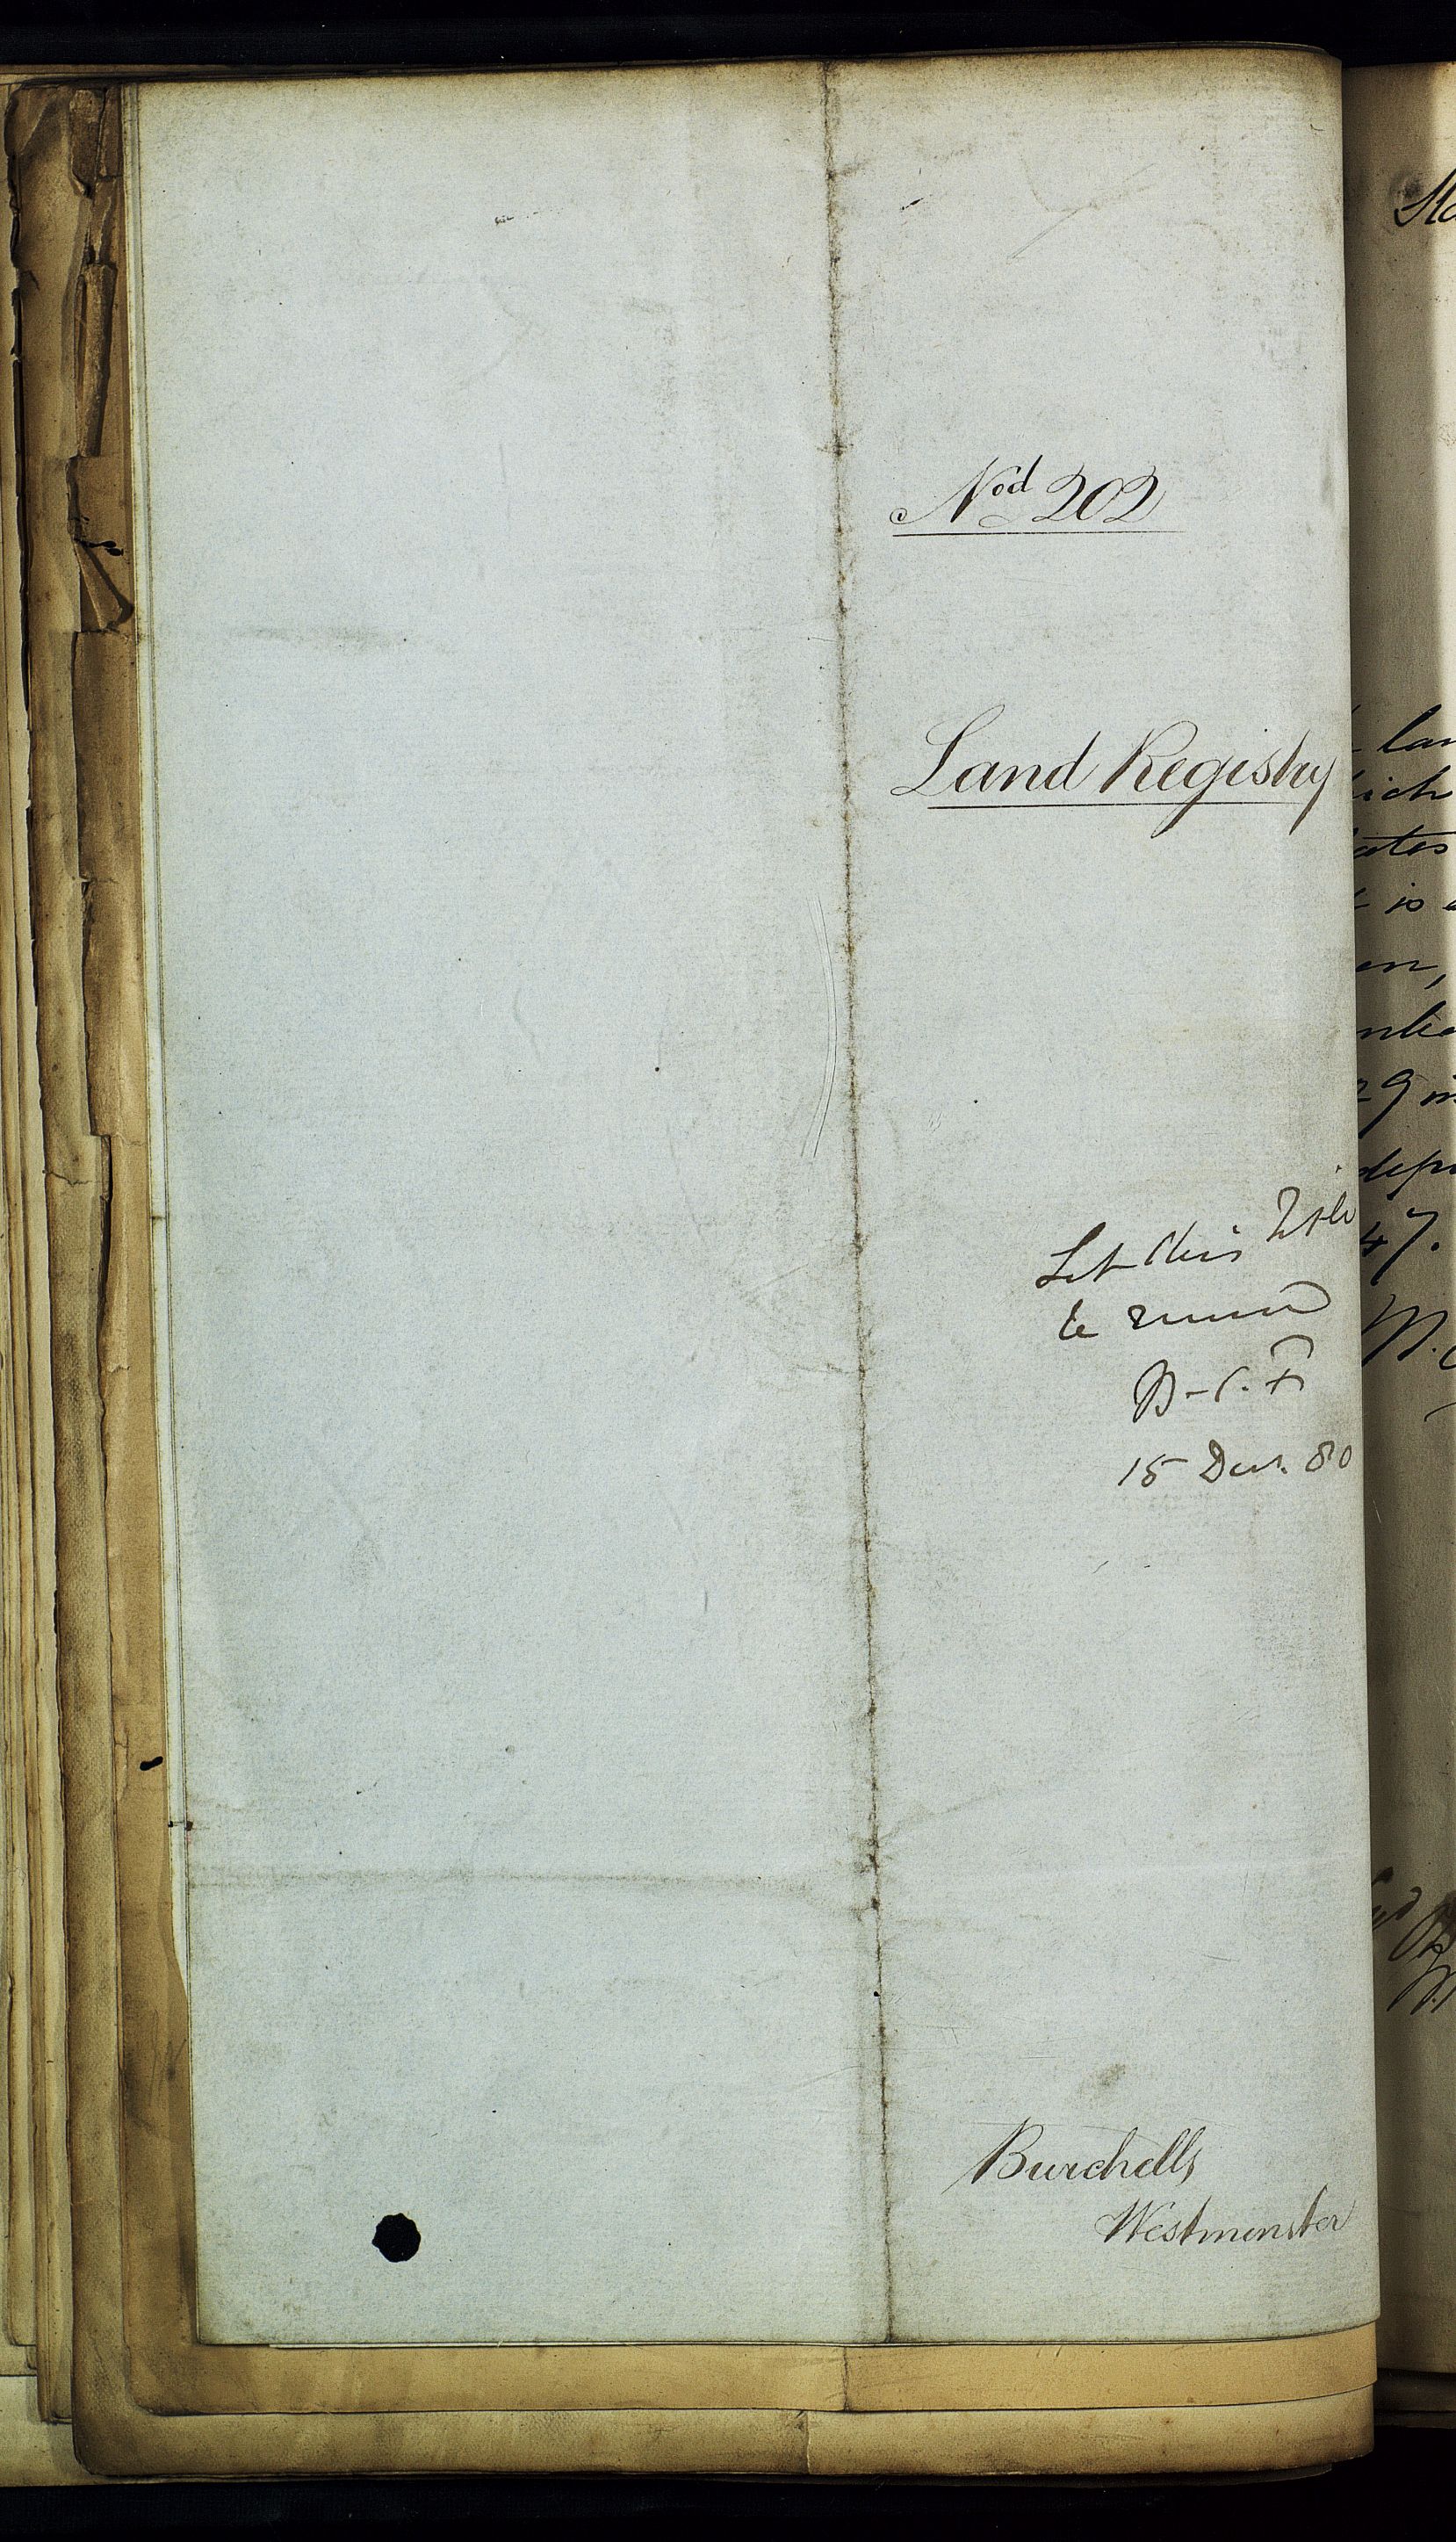 Nod 202
Land Registry
Let this Title
be
B-S. F
15 Decr. 80
Burchells
Westminster